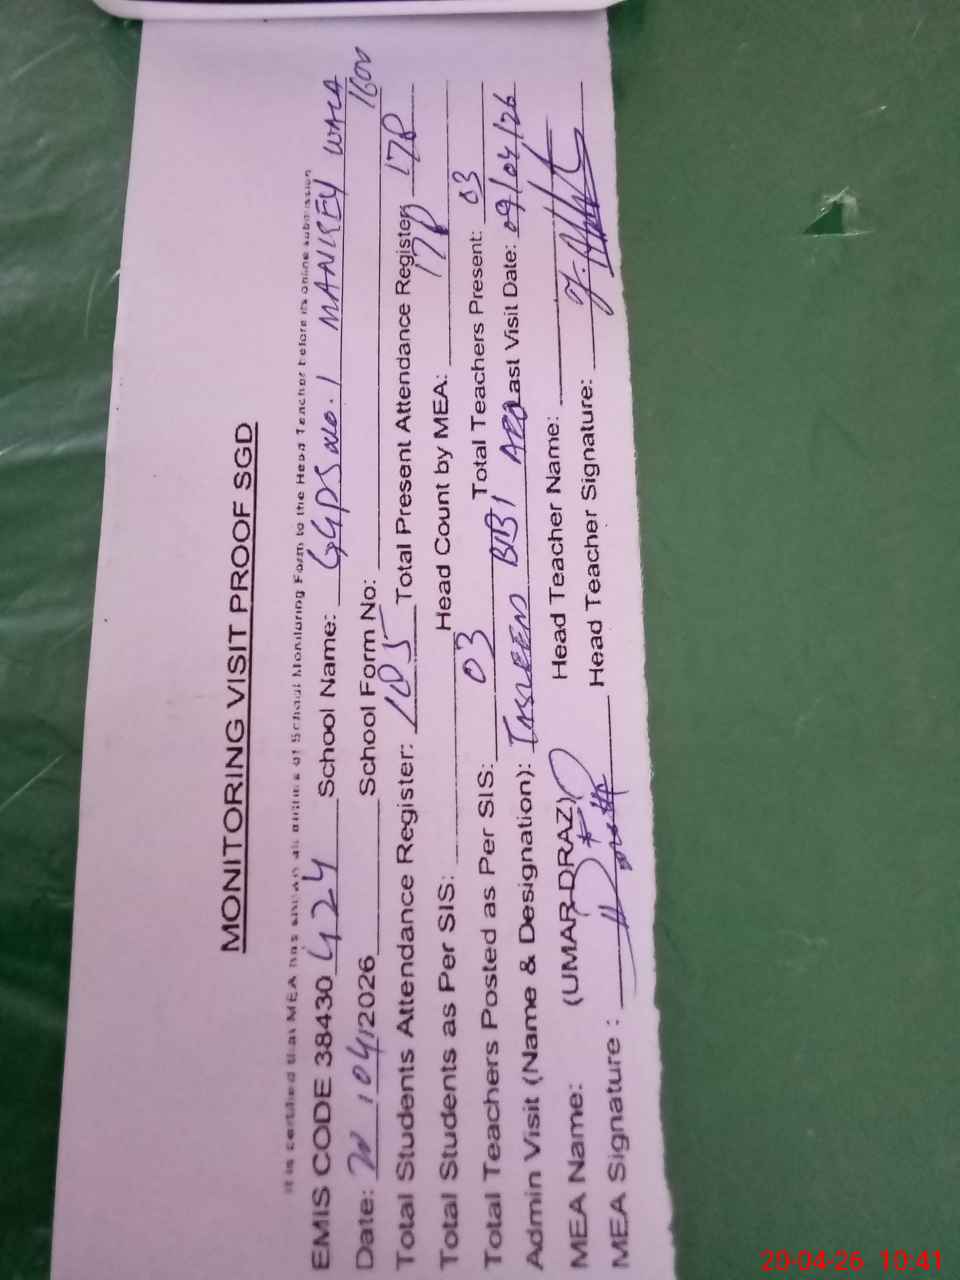 MONITORING VISIT PROOF SGD
It is certified that MEA has shown all entries of School Monitoring Form to the Head Teacher before its online submission
EMIS CODE 38430 424 School Name: GGPS No. 1 MANKEY WALA
Date: 20/04/2026 School Form No:
Total Students Attendance Register: 185 Total Present Attendance Register 178
Total Students as Per SIS: Head Count by MEA: 178
Total Teachers Posted as Per SIS: 03 Total Teachers Present: 03
Admin Visit (Name & Designation): TASLEEM BIBI AEO Last Visit Date: 09/04/26
MEA Name: (UMAR DRAZ) Head Teacher Name:
MEA Signature : Head Teacher Signature:
20-04-26 10:41